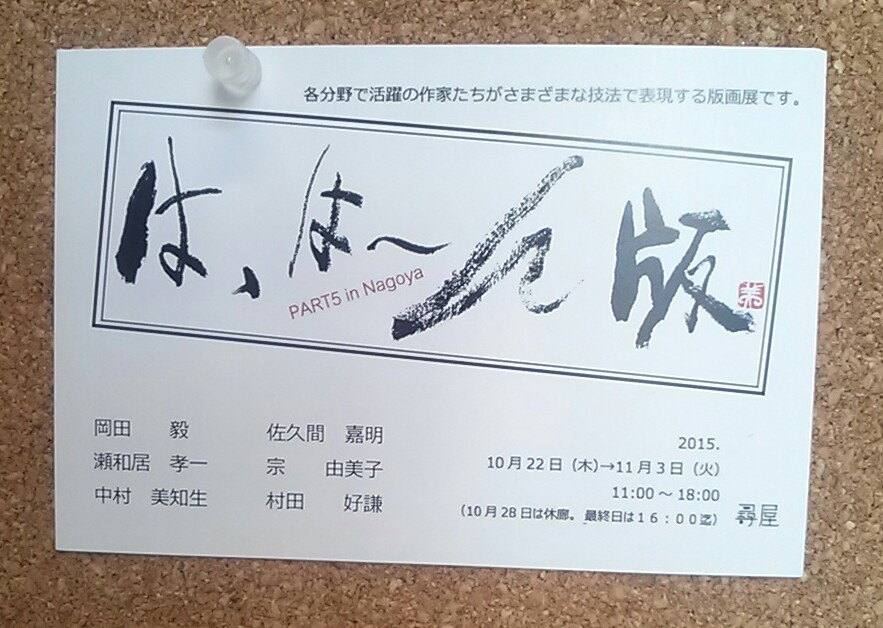 各分野で活躍の作家たちがさまざまな技法で表現する版画展です。
は、は〜ん版
PART5 in Nagoya
岡田 毅 佐久間 嘉明
瀬和居 孝一 宗 由美子
中村 美知生 村田 好謙
2015.
10月22日（木）→11月3日（火）
11:00〜18:00
（10月28日は休廊。最終日は１６：００迄） 尋屋